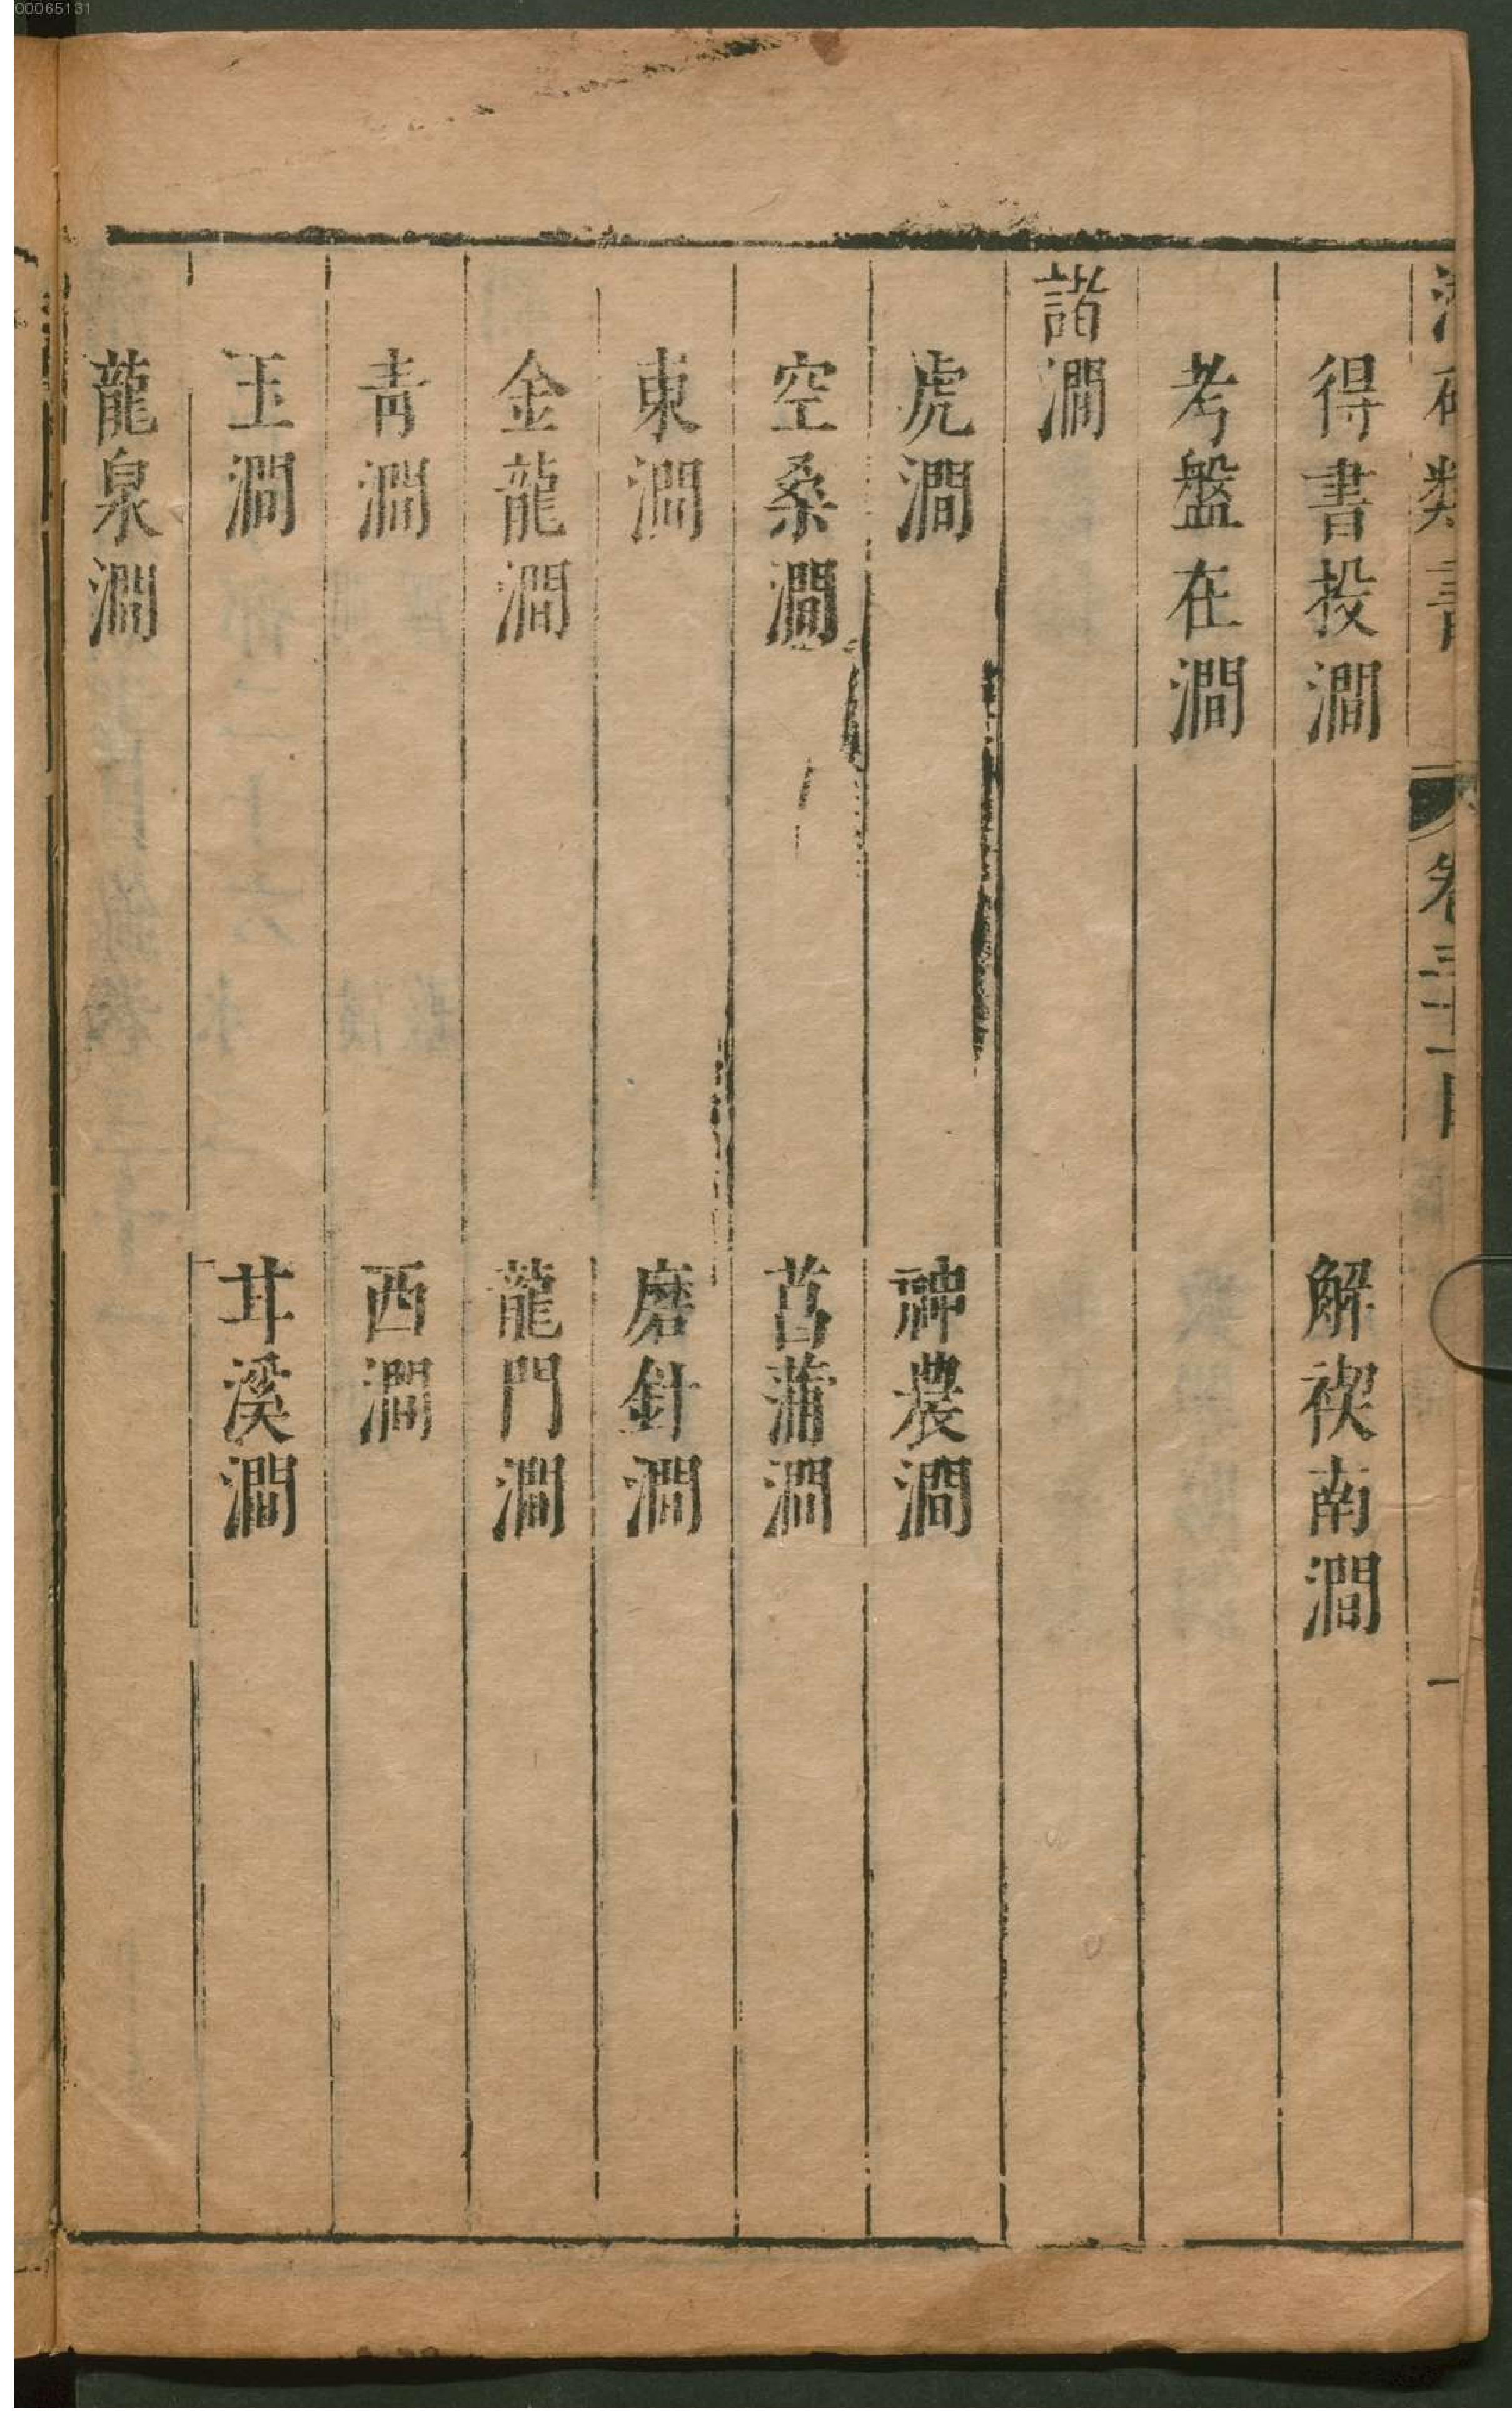 00065131
類書 卷三十一目 一
得書投澗 解禊南澗
考盤在澗
諸澗
虎澗 神農澗
空桑澗 菖蒲澗
東澗 磨針澗
金龍澗 龍門澗
青澗 西澗
玉澗 甘溪澗
龍泉澗